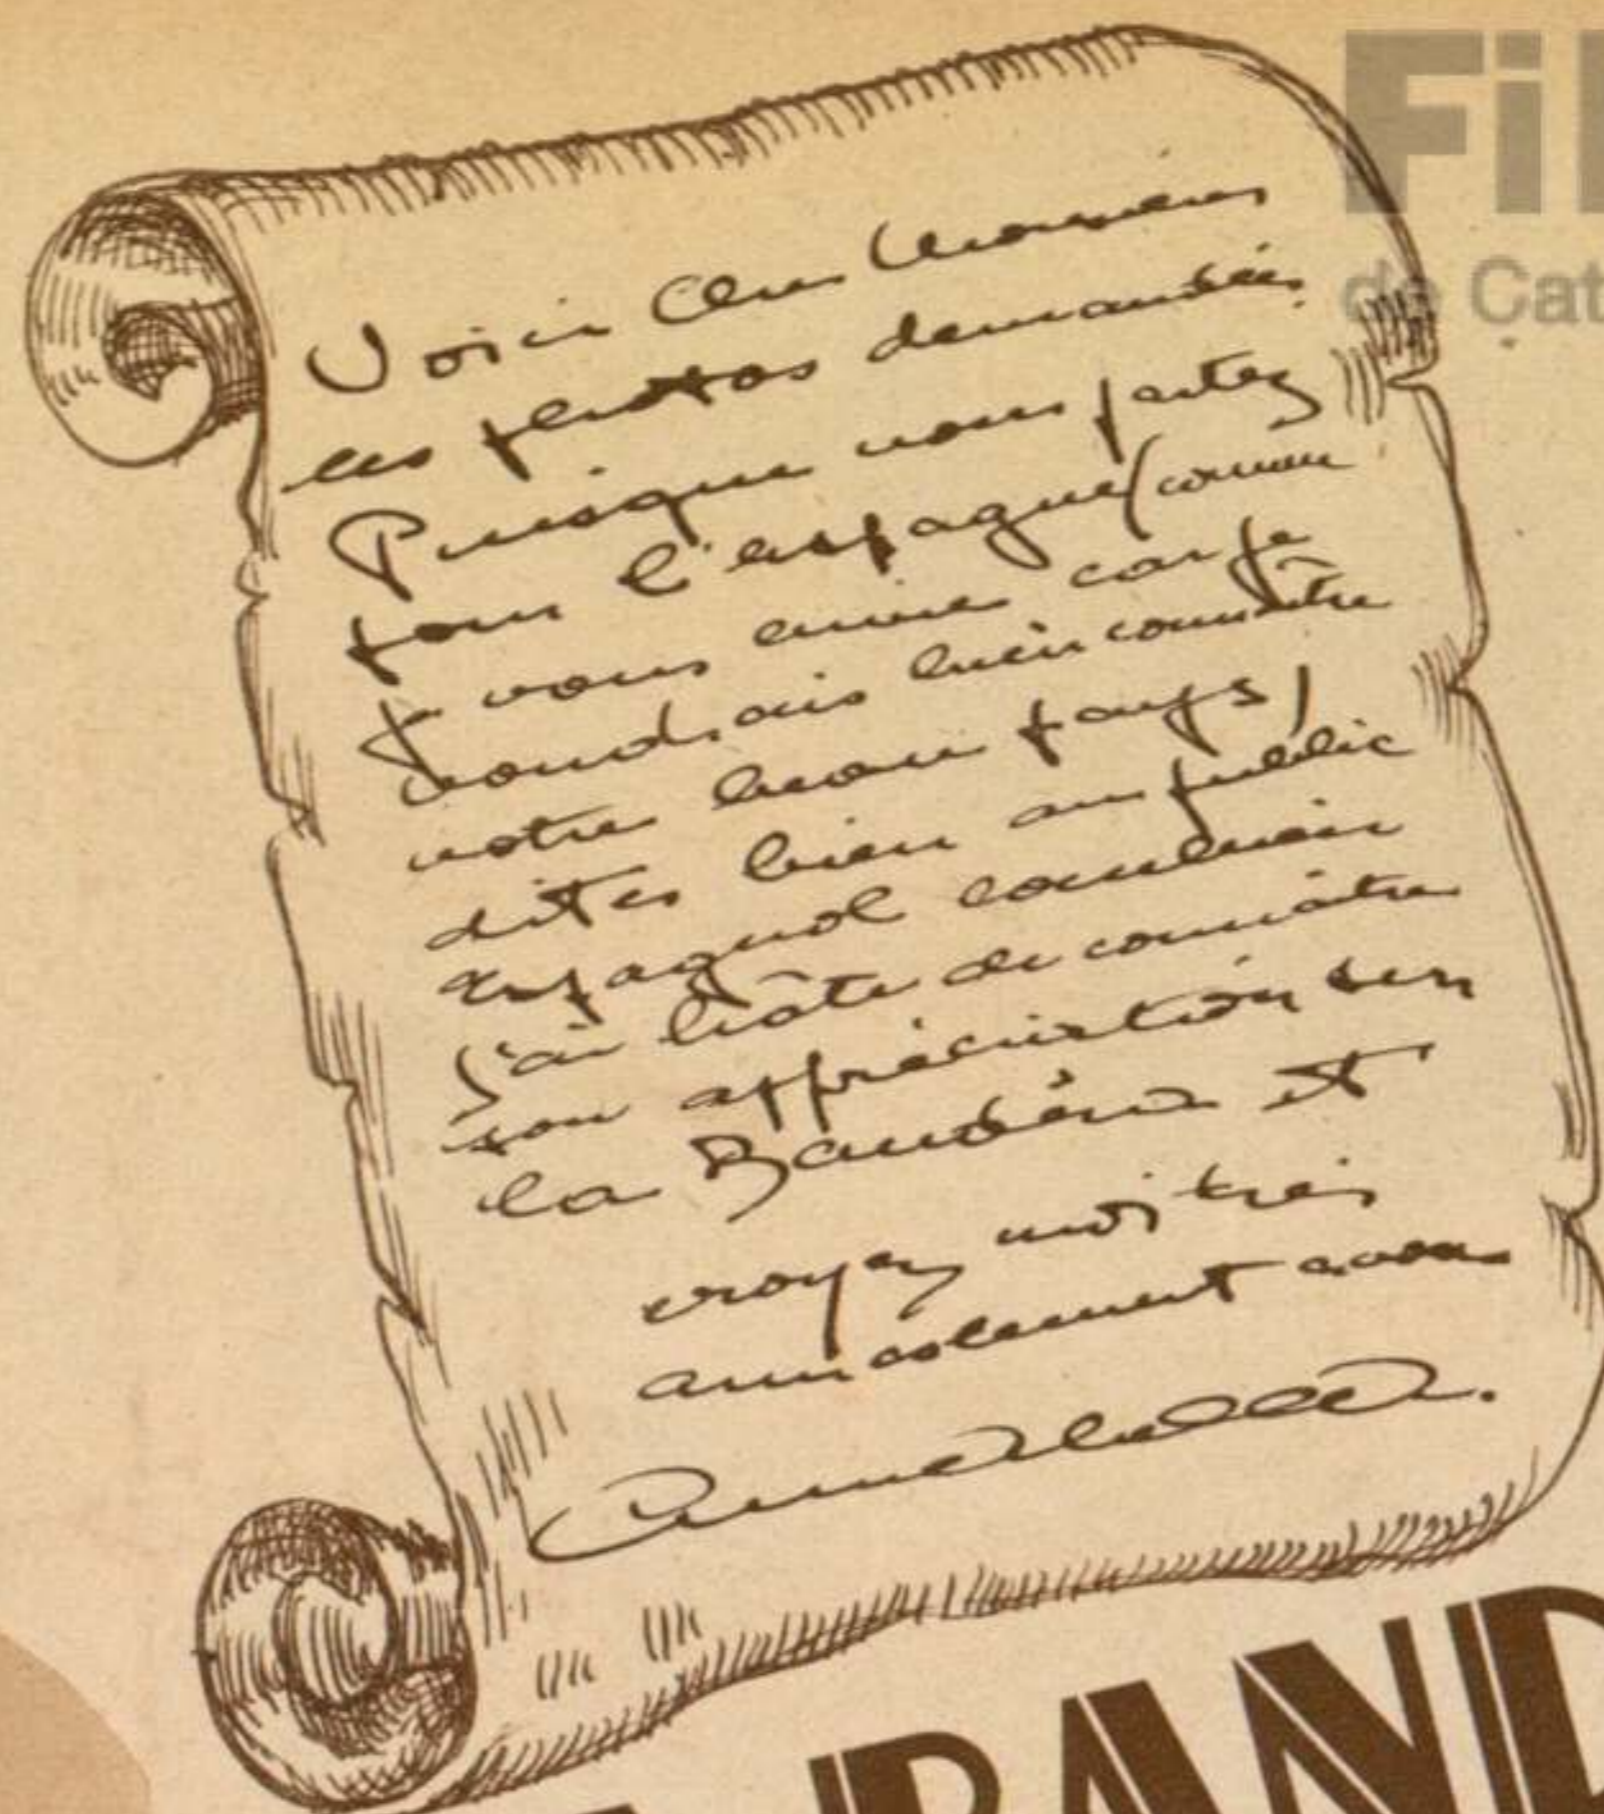 Voici Cher Monsieur
les photos demandées.
Puisque vous partez
pour l'espagne (comme
je vous envie car je
voudrais bien connaître
votre beau pays)
dites bien au public
Espagnol combien
j'ai hâte de connaître
son appréciation sur
la Bandera et
croyez moi très
amicalement à vous
Annabella.
Fil
de Cat
BAND